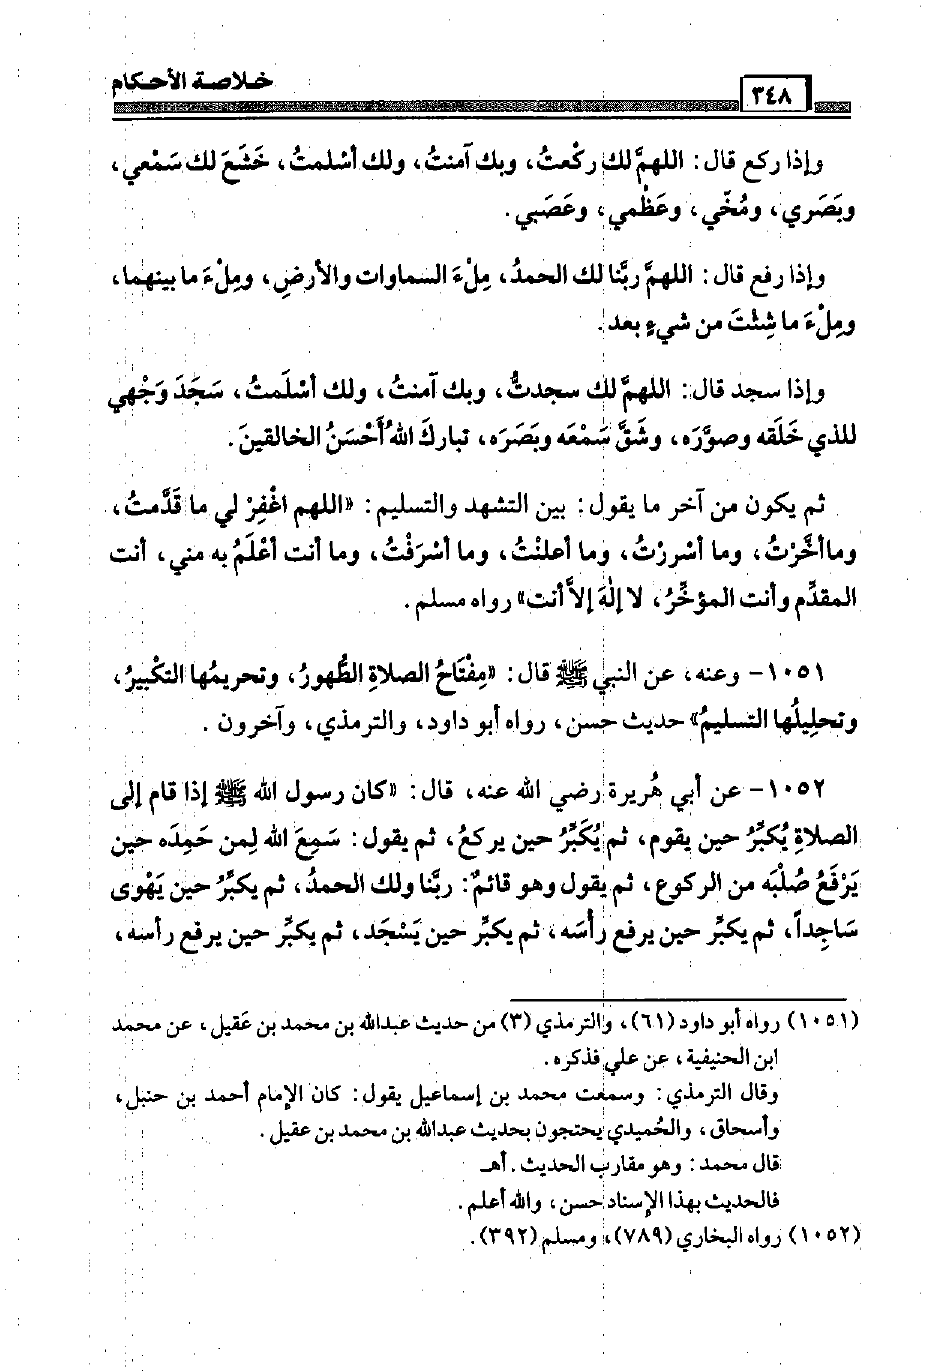 خلاصة الأحكام
٣٤٨
وإذا ركع قال: اللهمَّ لك ركعتُ، وبك آمنتُ، ولك أسْلمتُ، خَشَعَ لك سَمْعي،
وبَصَري، ومُخّي، وعَظْمي، وعَصَبي.
وإذا رفع قال: اللهمَّ ربَّنا لك الحمدُ، مِلْءَ السماوات والأرضِ، ومِلْءَ ما بينهما،
ومِلْءَ ما شِئْتَ من شيءٍ بعد.
وإذا سجد قال: اللهمَّ لك سجدتُّ، وبك آمنتُ، ولك أسْلَمتُ، سَجَدَ وَجْهي
للذي خَلَقه وصوَّرَه، وشَقَّ سَمْعَه وبَصَرَه، تباركَ اللهُ أَحْسَنُ الخالقينَ.
ثم يكون من آخر ما يقول: بين التشهد والتسليم: «اللهم اغْفِرْ لي ما قَدَّمتُ،
وما أخَّرْتُ، وما أسْررْتُ، وما أعلنْتُ، وما أسْرَفْتُ، وما أنت أعْلَمُ به مني، أنت
المقدِّم وأنت المؤخِّرُ، لا إلٰهَ إلاَّ أنت» رواه مسلم.
١٠٥١- وعنه، عن النبي ﷺ قال: «مِفْتَاحُ الصلاةِ الطُّهورُ، وتحريمُها التكْبيرُ،
وتحلِيلُها التسليمُ» حديث حسن، رواه أبو داود، والترمذي، وآخرون.
١٠٥٢- عن أبي هُريرة رضي الله عنه، قال: «كان رسول الله ﷺ إذا قام إلى
الصلاةِ يُكبِّرُ حين يقوم، ثم يُكَبِّرُ حين يركعُ، ثم يقول: سَمِعَ الله لِمن حَمِدَه حين
يَرْفَعُ صُلْبَه من الركوع، ثم يقول وهو قائمٌ: ربَّنا ولك الحمدُ، ثم يكبِّرُ حين يَهْوى
سَاجِداً، ثم يكبِّر حين يرفع رأسَه، ثم يكبِّر حين يَسْجَد، ثم يكبِّر حين يرفع رأسه،
(١٠٥١) رواه أبو داود (٦١)، والترمذي (٣) من حديث عبدالله بن محمد بن عَقيل، عن محمد
ابن الحنيفية، عن علي فذكره.
وقال الترمذي: وسمعت محمد بن إسماعيل يقول: كان الإمام أحمد بن حنبل،
وأسحاق، والحُميدي يحتجون بحديث عبدالله بن محمد بن عقيل.
قال محمد: وهو مقارب الحديث. أهـ
فالحديث بهذا الإسناد حسن، والله أعلم.
(١٠٥٢) رواه البخاري (٧٨٩)، ومسلم (٣٩٢).